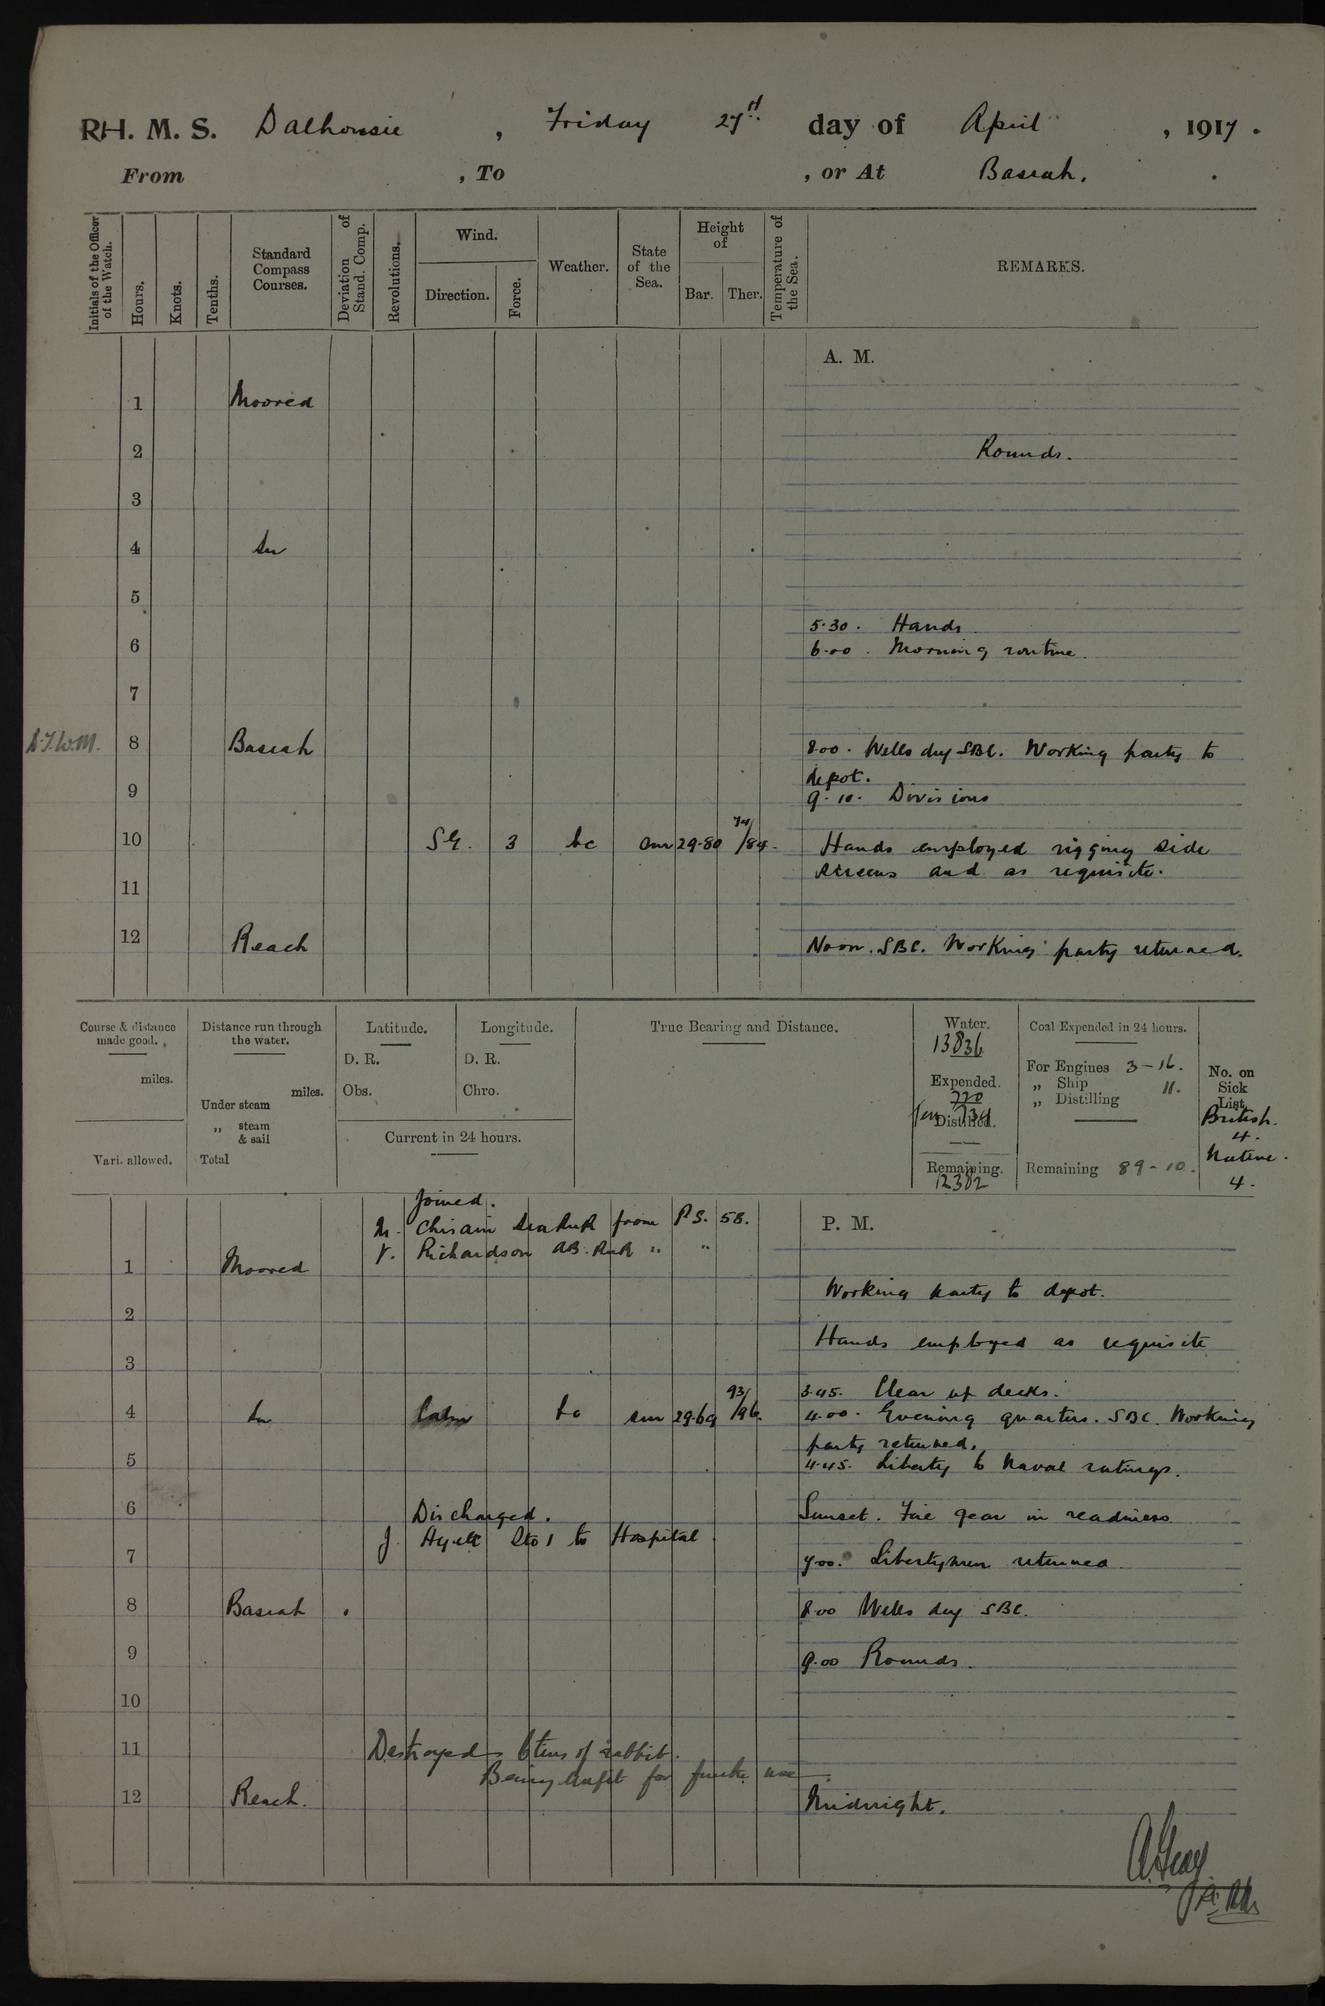 RH. M. S. Dalhousie , Friday 27th day of April , 1917 .
From , To , or At Basrah. .
Initials of the Officer of the Watch.
Hours.
Knots.
Tenths.
Standard Compass Courses.
Deviation of Stand. Comp.
Revolutions.
Wind.
Direction.
Force.
Weather.
State of the Sea.
Height of
Bar.
Ther.
Temperature of the Sea.
REMARKS.
A. M.
1 Moored
2 Rounds.
3
4 In
5
5.30. Hands
6 6.00. Morning routine.
7
8 Basrah 8.00. Wells dry SBC. Working party to
depot.
9 9.10. Divisions
10 SE. 3 bc sm 29.80 74/84. Hands employed rigging side
screens and as requisite.
11
12 Reach Noon. SBC. Working party returned.
Course & distance made good.
miles.
Vari. allowed.
Distance run through the water.
miles.
Under steam
„ steam & sail
Total
Latitude.
D. R.
Obs.
Longitude.
D. R.
Chro.
Current in 24 hours.
True Bearing and Distance.
Water.
13836
Expended.
720
734
Distilled.
Remaining.
12382
Coal Expended in 24 hours.
For Engines 3-16.
„ Ship 11.
„ Distilling
Remaining 89-10.
No. on Sick List
British.
4.
Native.
4.
Joined.
from P.S. 58.
V. Richardson AB. RNR „ „
P. M.
1 Moored
Working party to depot.
2
Hands employed as requisite
3
3.45. Clear up decks.
4 In Calm bc sm 29.69 93/96. 4.00. Evening quarters. SBC. Working
party returned.
5 4.45. Liberty to Naval ratings.
6 Discharged. Sunset. Fire gear in readiness
J. Sto 1 to Hospital.
7 7.00. Libertymen returned
8 Basrah 8.00 Wells dry SBC.
9 9.00 Rounds.
10
11 Destroyed 6 tins of rabbit.
Being unfit for further use
12 Reach. Midnight.
A. Gray